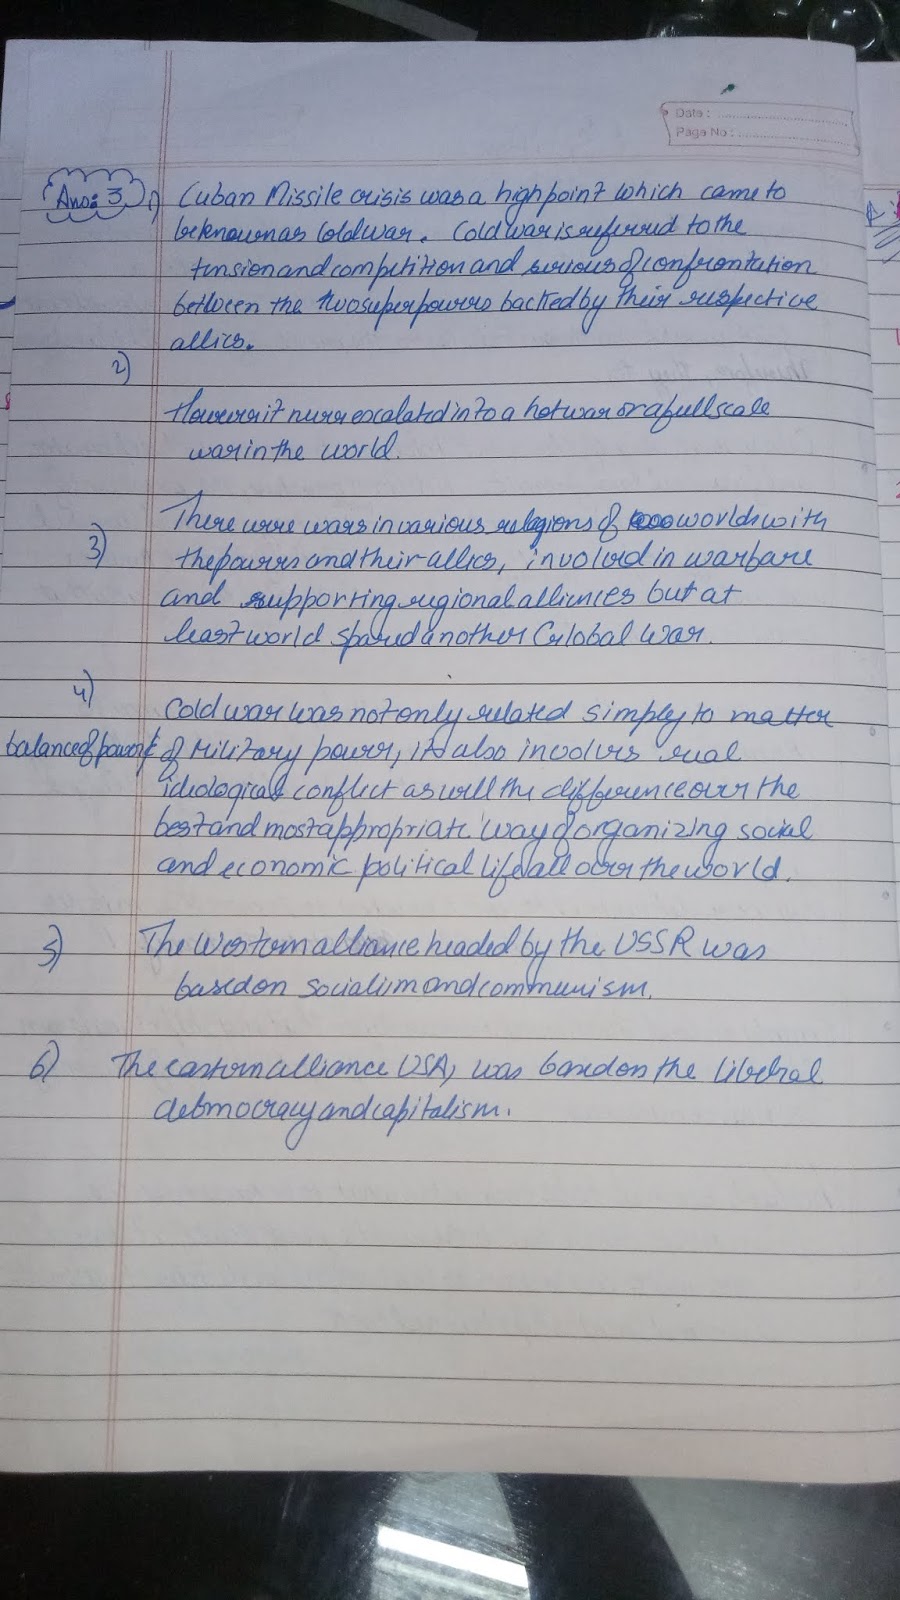 Date :
Page No :
Ans: 3 1) Cuban Missile crisis was a high point which came to
be known as Cold war. Cold war is referred to the
tension and competition and serious of confrontation
between the two superpowers backed by their respective
allies.
2)
However it never escalated into a hot war or a full scale
war in the world.
There were wars in various relegions of worlds with
3) the powers and their allies, involved in warfare
and supporting regional alliences but at
least world spared another Global War.
4)
Cold war was not only related simply to matter
balance of power & of Military power, it also involves real
ideological conflict as well the difference over the
best and most appropriate way of organizing social
and economic political life all over the world.
5) The Western alliance headed by the USSR was
based on socialism and communism.
6) The eastern alliance USA, was based on the liberal
debmocracy and capitalism.